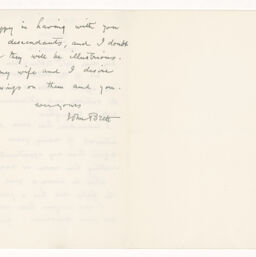 ppy in having with you
descendants, and I doubt
they will be illustrious.
my wife and I desire
ings on them and you.
ever yours
John Brett